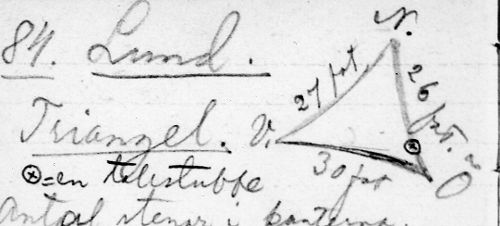 84. Lund.
N.
27 fot
26 fot.
Triangel. V.
30 fot
O
⊗=en
Antal stenar i kanterna.